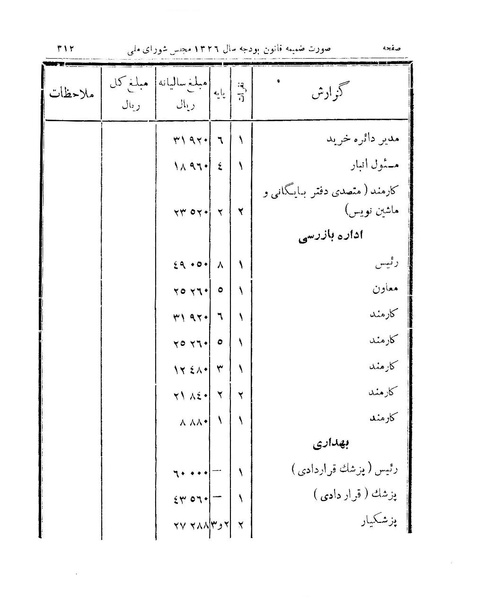 صفحه صورت ضمیمه قانون بودجه سال ۱۳۲۶ مجلس شورای ملی ۳۱۲
گزارش نفرات پایه مبلغ سالیانه ریال مبلغ کل ریال ملاحظات
مدیر دائره خرید ۱ ۶ ۳۱ ۹۲۰
مسئول انبار ۱ ٤ ۱۸ ۹۶۰
کارمند ( متصدی دفتر ببایگانی و
ماشین نویس) ۲ ۲ ۲۳ ۵۲۰
اداره بازرسی
رئیس ۱ ۸ ٤۹ ۰۵۰
معاون ۱ ۵ ۲۵ ۲۶۰
کارمند ۱ ۶ ۳۱ ۹۲۰
کارمند ۱ ۵ ۲۵ ۲۶۰
کارمند ۱ ۳ ۱۲ ٤۸۰
کارمند ۲ ۲ ۲۱ ۸٤۰
کارمند ۱ ۱ ۸ ۸۸۰
بهداری
رئیس ( پزشك قراردادی ) ۱ — ۶۰ ۰۰۰
پزشك ( قراردادی ) ۱ — ٤۳ ۵۶۰
پزشکیار ۲ ۲و۳ ۲۷ ۲۸۸